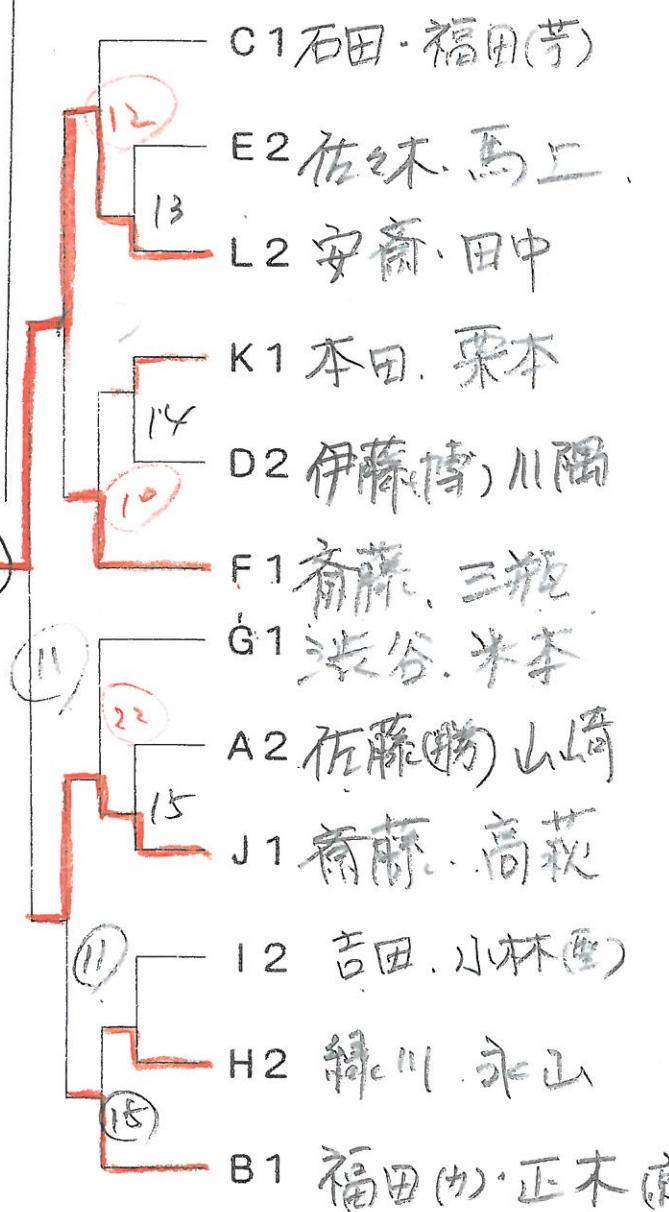 C1 石田・福田(芳)
12
E2 佐々木・馬上
13
L2 安斎・田中
K1 本田・栗本
14
D2 伊藤(博) 川隅
10
F1 斎藤、三瓶
G1 渋谷・米本
11
22
A2 佐藤(勝) 山崎
15
J1 斎藤・高萩
11
I2 吉田・小林
H2 緑川 永山
15
B1 福田(カ)・正木